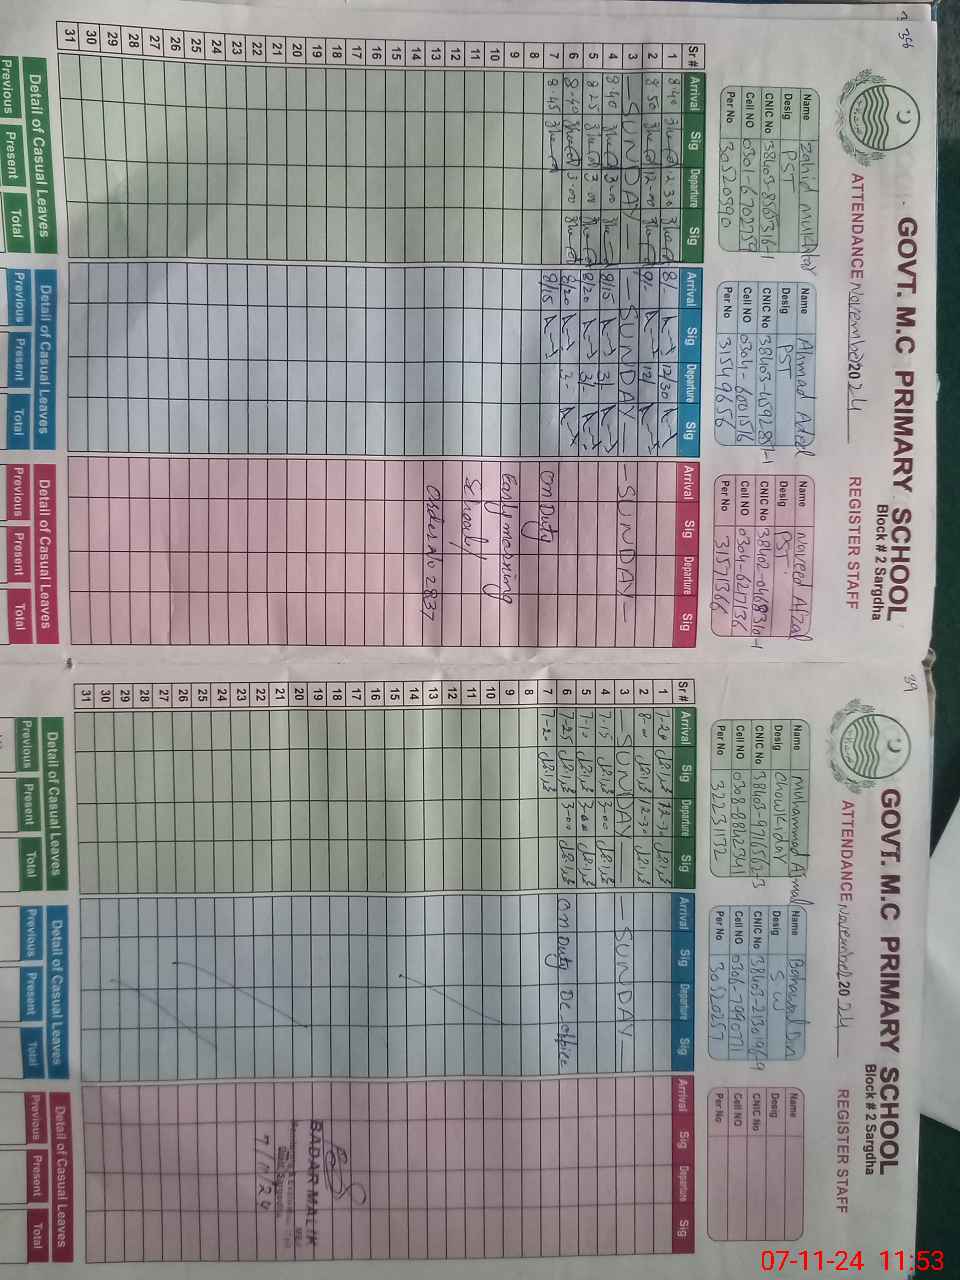 38
GOVT. M.C PRIMARY SCHOOL
Block # 2 Sargdha
ATTENDANCE November 2024 REGISTER STAFF
Name Zahid Mukhtar
Desig PST
CNIC No
Cell NO 0301-6702754
Per No 30520590
Name Ahmad Adeel
Desig PST
CNIC No 38403-4592857-1
Cell NO 0304-6001516
Per No 31549656
Name Naveed Afzal
Desig PST
CNIC No 38402-0468310-1
Cell NO 0304-6217136
Per No 31571366
Sr # Arrival Sig Departure Sig Arrival Sig Departure Sig Arrival Sig Departure Sig
1 8.40 12.30 8/- 12/30
2 8.50 12.00 8/- 12/
3 — SUNDAY — — SUNDAY — — SUNDAY —
4 8.40 3.00 8/15 3/
5 8.25 3.00 8/20 3/-
6 8.40 3.00 8/20 3-
7 8.45 8/15 On Duty
8
9 Early morning
10
11 School
12
13 Order No 2837
14
15
16
17
18
19
20
21
22
23
24
25
26
27
28
29
30
31
Detail of Casual Leaves Detail of Casual Leaves Detail of Casual Leaves
Previous Present Total Previous Present Total Previous Present Total
39
GOVT. M.C PRIMARY SCHOOL
Block # 2 Sargdha
ATTENDANCE November 2024 REGISTER STAFF
Name Muhammad Ajmal
Desig Chowkidar
CNIC No 38403-9716562-3
Cell NO 0308-8842341
Per No 32231132
Name Bahawal Din
Desig S W
CNIC No 38403-2130196-9
Cell NO 0306-7990771
Per No 30520257
Name
Desig
CNIC No
Cell NO
Per No
Sr # Arrival Sig Departure Sig Arrival Sig Departure Sig Arrival Sig Departure Sig
1 7-20 12-30
2 8-00 12-30
3 — SUNDAY — — SUNDAY —
4 7-15 3-00
5 7-10 3-00
6 7-25 3-00 On Duty Dc office
7 7-20
8
9
10
11
12
13
14
15
16
17
18
19 BADAR MALIK
20
21
22 7/11/24
23
24
25
26
27
28
29
30
31
Detail of Casual Leaves Detail of Casual Leaves Detail of Casual Leaves
Previous Present Total Previous Present Total Previous Present Total
07-11-24 11:53